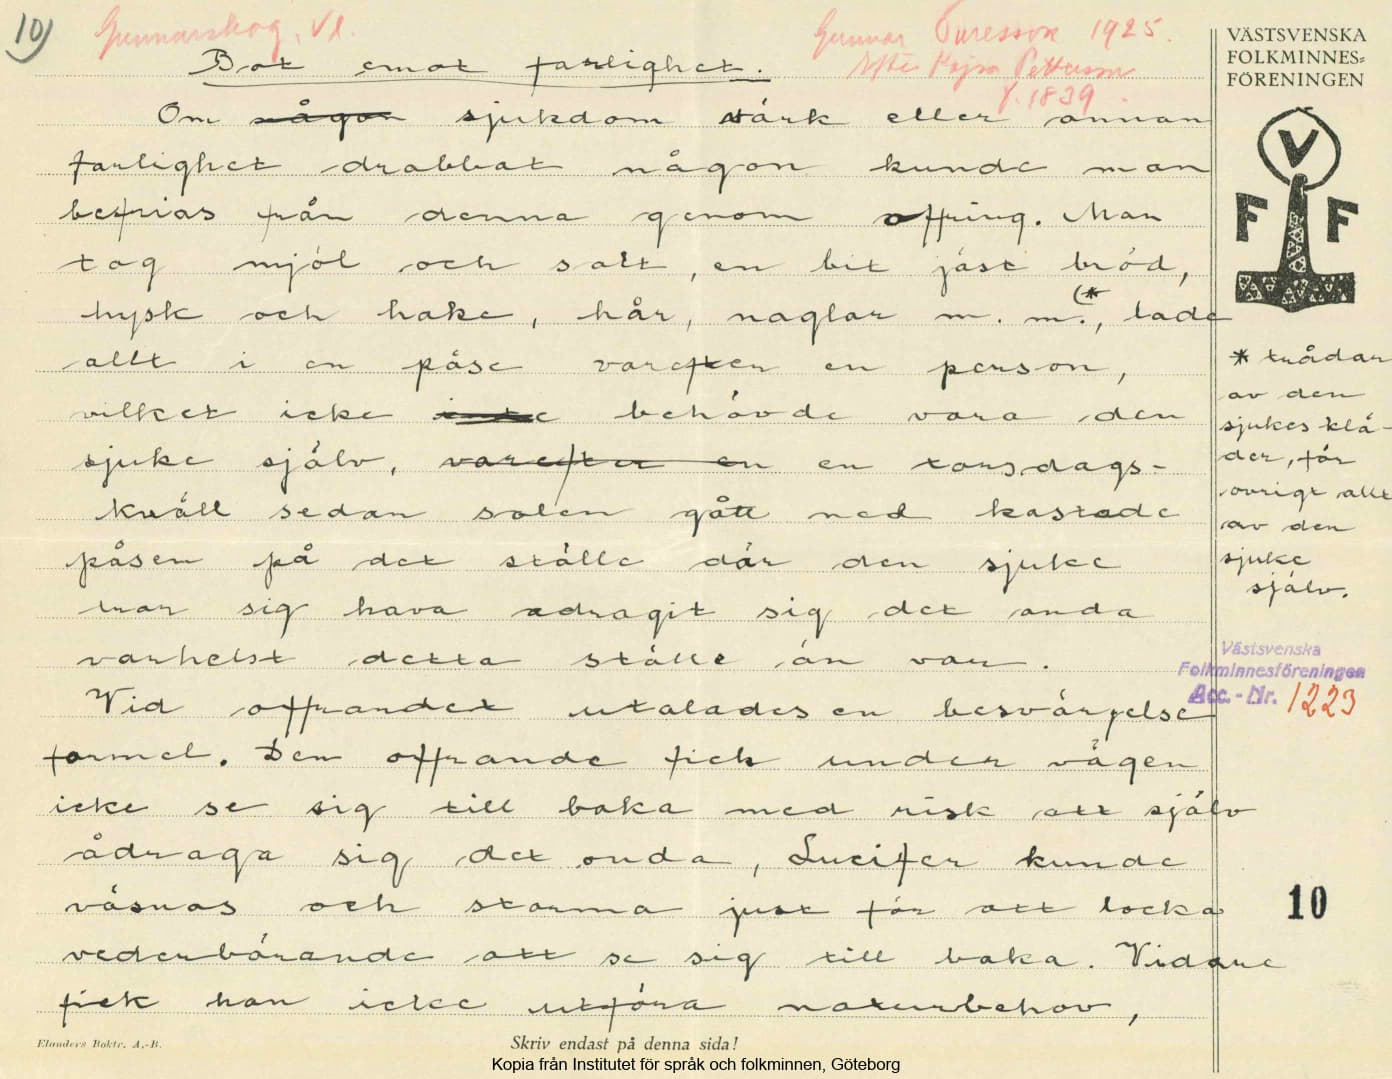 10)
Gunnarskog, Vl.
Gunnar Turesson 1925.
Efter Kajsa Pettersson
f. 1839.
VÄSTSVENSKA
FOLKMINNES-
FÖRENINGEN
V
F F
Bot emot farlighet.
Om någon sjukdom värk eller annan
farlighet drabbat någon kunde man
befrias från denna genom offring. Man
tog mjöl och salt, en bit jäst bröd,
hysk och hake, hår, naglar m. m.(*, lade
allt i en påse varefter en person,
vilket icke inte behövde vara den
sjuke själv, varefter en en torsdags-
kväll sedan solen gått ned kastade
påsen på det ställe där den sjuke
tror sig hava ådragit sig det onda
varhelst detta ställe än var.
Vid offrandet utalades en besvärjelse
formel. Den offrande fick under vägen
icke se sig till baka med risk att själv
ådraga sig det onda, Lucifer kunde
väsnas och storma just för att locka
vederbörande att se sig till baka. Vidare
fick han icke utföra naturbehov,
* trådar
av den
sjukes klä-
der, för
övrigt allt
av den
sjuke
själv.
Västsvenska
Folkminnesföreningen
Acc.-Nr. 1223
10
Elanders Boktr. A.-B.
Skriv endast på denna sida!
Kopia från Institutet för språk och folkminnen, Göteborg